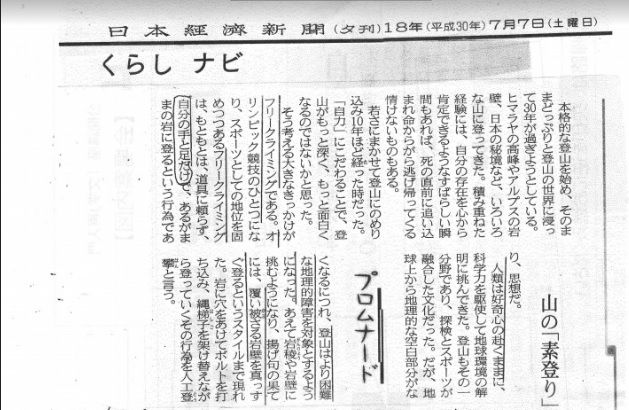 日本経済新聞 (夕刊) 18年(平成30年)7月7日(土曜日)
くらし ナビ
本格的な登山を始め、そのま
まどっぷりと登山の世界に浸っ
て30年が過ぎようとしている。
ヒマラヤの高峰やアルプスの岩
壁、日本の秘境など、いろいろ
な山に登ってきた。積み重ねた
経験には、自分の存在を心から
肯定できるようなすばらしい瞬
間もあれば、死の直前に追い込
まれ命からがら逃げ帰ってくる
情けないものもある。
若さにまかせて登山にのめり
込み10年ほど経った時だった。
「自力」にこだわることで、登
山がもっと深く、もっと面白く
なるのではないかと思った。
そう考える大きなきっかけが
フリークライミングである。オ
リンピック競技のひとつにな
り、スポーツとしての地位を固
めつつあるフリークライミング
は、もともとは、道具に頼らず、
自分の手と足だけで、あるがま
まの岩に登るという行為であ
山の「素登り」
り、思想だ。
人類は好奇心の赴くままに、
科学力を駆使して地球環境の解
明に挑んできた。登山もその一
分野であり、探検とスポーツが
融合した文化だった。だが、地
球上から地理的な空白部分がな
プロムナード
くなるにつれ、登山はより困難
な地理的障害を対象とするよう
になった。あえて岩稜や岩壁に
挑むようになり、揚げ句の果て
には、覆い被さる岩壁を真っす
ぐ登るというスタイルまで現れ
た。岩に穴をあけてボルトを打
ち込み、縄梯子を架け替えなが
ら登っていくその行為を人工登
攀と言う。